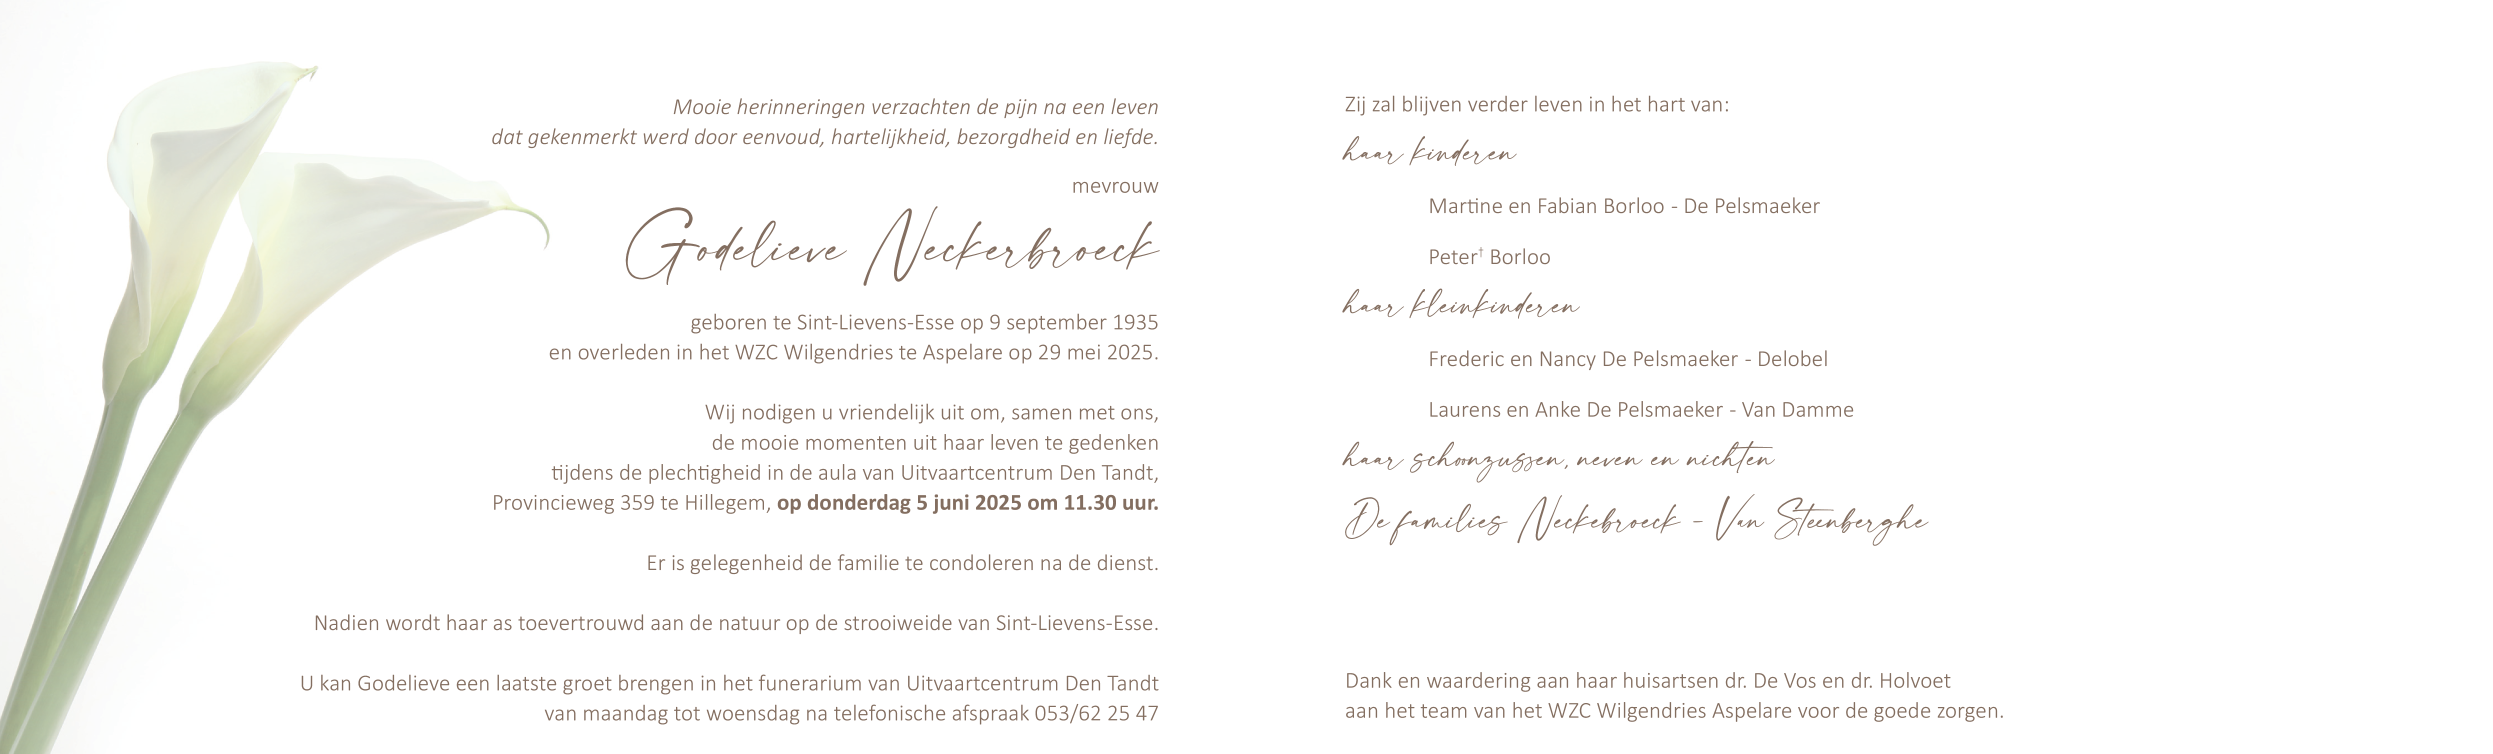 Mooie herinneringen verzachten de pijn na een leven
dat gekenmerkt werd door eenvoud, hartelijkheid, bezorgdheid en liefde.
mevrouw
Godelieve Neckerbroeck
geboren te Sint-Lievens-Esse op 9 september 1935
en overleden in het WZC Wilgendries te Aspelare op 29 mei 2025.
Wij nodigen u vriendelijk uit om, samen met ons,
de mooie momenten uit haar leven te gedenken
tijdens de plechtigheid in de aula van Uitvaartcentrum Den Tandt,
Provincieweg 359 te Hillegem, op donderdag 5 juni 2025 om 11.30 uur.
Er is gelegenheid de familie te condoleren na de dienst.
Nadien wordt haar as toevertrouwd aan de natuur op de strooiweide van Sint-Lievens-Esse.
U kan Godelieve een laatste groet brengen in het funerarium van Uitvaartcentrum Den Tandt
van maandag tot woensdag na telefonische afspraak 053/62 25 47
Zij zal blijven verder leven in het hart van:
haar kinderen
Martine en Fabian Borloo - De Pelsmaeker
Peter† Borloo
haar kleinkinderen
Frederic en Nancy De Pelsmaeker - Delobel
Laurens en Anke De Pelsmaeker - Van Damme
haar schoonzussen, neven en nichten
De families Neckebroeck - Van Steenberghe
Dank en waardering aan haar huisartsen dr. De Vos en dr. Holvoet
aan het team van het WZC Wilgendries Aspelare voor de goede zorgen.